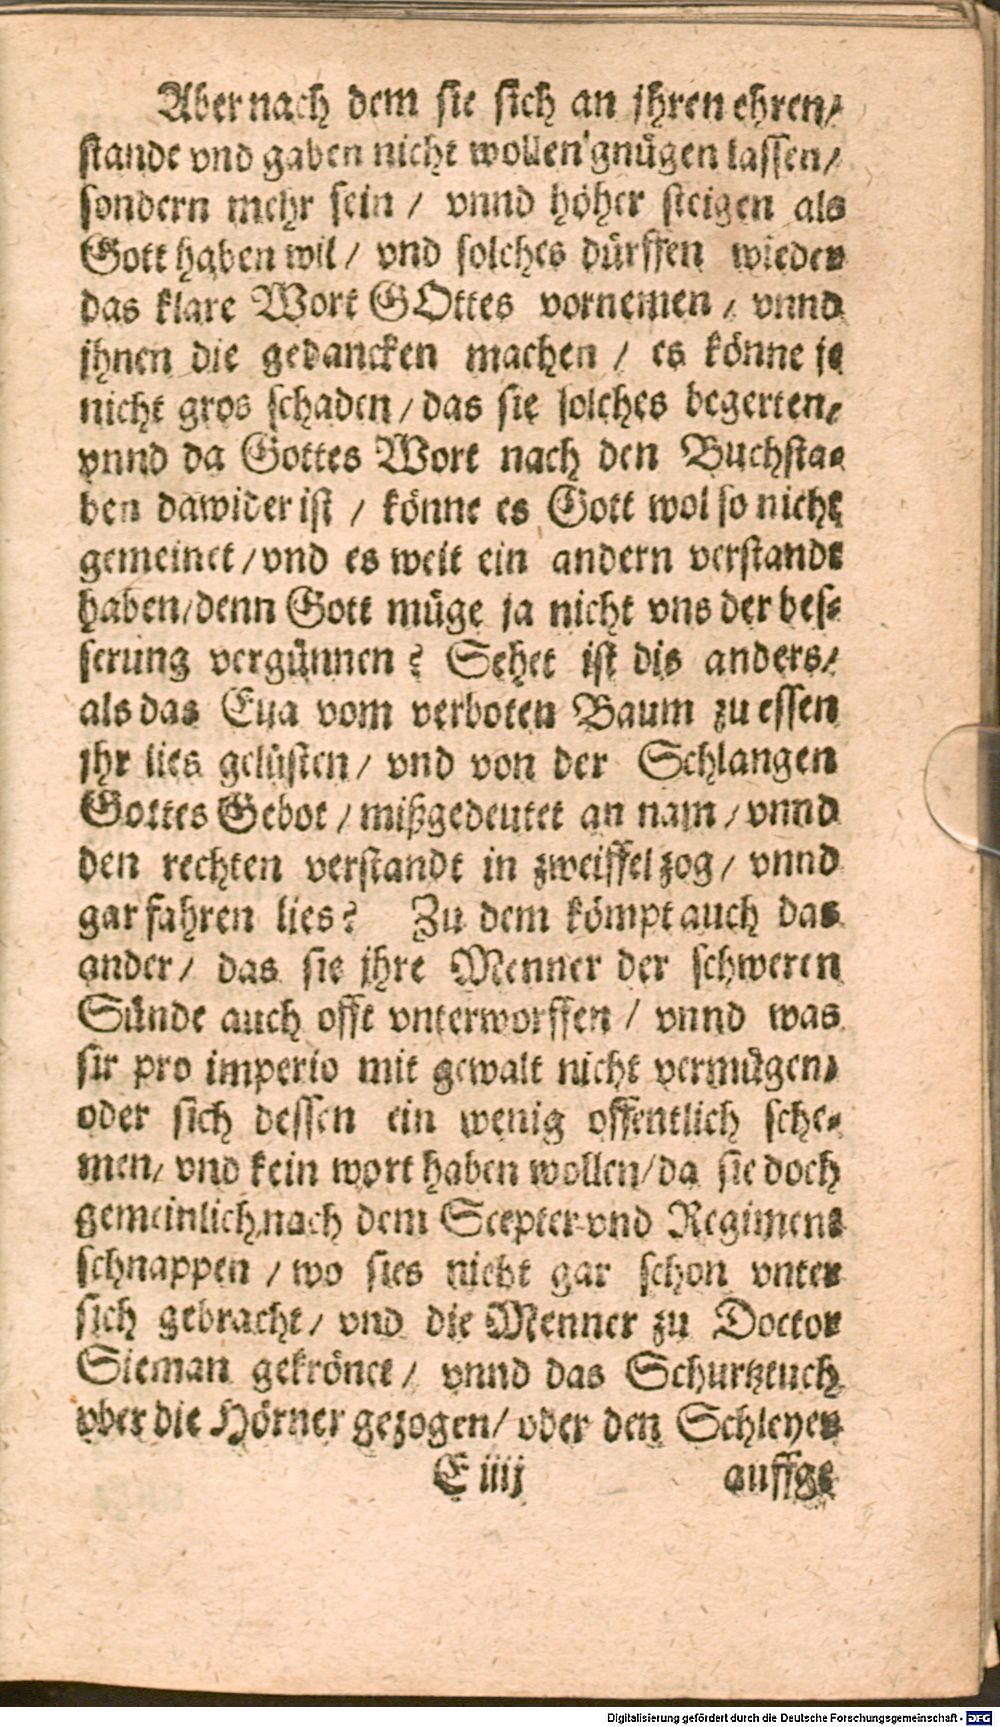 Aber nach dem sie sich an jhren ehren/
stande vnd gaben nicht wollen gnügen lassen/
sondern mehr sein / vnnd höher steigen als
Gott haben wil / vnd solches dürffen wieder
das klare Wort GOttes vornemen / vnnd
jhnen die gedancken machen / es könne ja
nicht gros schaden / das sie solches begerten/
vnnd da Gottes Wort nach den Buchsta-
ben dawider ist / könne es Gott wol so nicht
gemeinet / vnd es weit ein andern verstandt
haben / denn Gott müge ja nicht vns der bes-
serung vergünnen? Sehet ist dis anders/
als das Eua vom verboten Baum zu essen
jhr lies gelüsten / vnd von der Schlangen
Gottes Gebot / mißgedeutet an nam / vnnd
den rechten verstandt in zweiffel zog / vnnd
gar fahren lies? Zu dem kömpt auch das
ander / das sie jhre Menner der schweren
Sünde auch offt vnterworffen / vnnd was
sir pro imperio mit gewalt nicht vermügen/
oder sich dessen ein wenig offentlich sche-
men / vnd kein wort haben wollen / da sie doch
gemeinlich nach dem Scepter vnd Regiment
schnappen / wo sies nicht gar schon vnter
sich gebracht / vnd die Menner zu Doctor
Sieman gekrönet / vnnd das Schurtztuch
vber die Hörner gezogen / oder den Schleyer
E iiij auffge
Digitalisierung gefördert durch die Deutsche Forschungsgemeinschaft - DFG